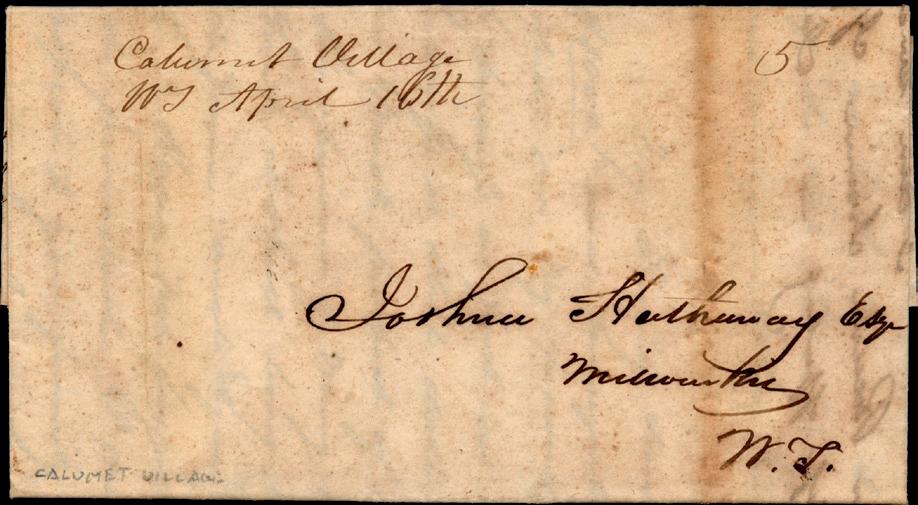 Calumet Village
WT April 16th
5
Joshua Hathaway Esqr
Milwaukie
W.T.
CALUMET VILLAGE